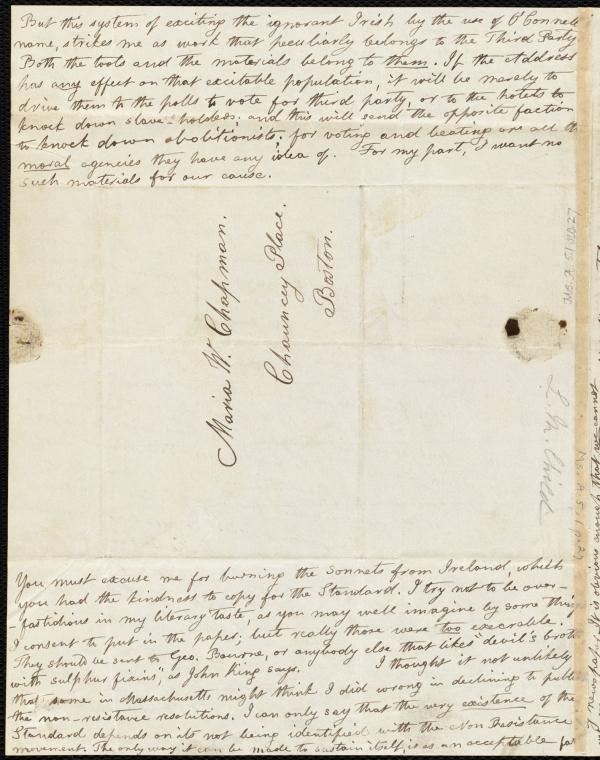 But this system of exciting the ignorant Irish by the use of O'Connell
name, strikes me as work that peculiarly belongs to the Third Party
Both the tools and the materials belong to them. If the Address
has any effect on that excitable population, it will be merely to
drive them to the polls to vote for third party, or to the hotels to
knock down slave-holders. and this will send the opposite faction
to knock down abolitionists; for voting and beating are all the
moral agencies they have any idea of. For my part, I want no
such materials for our cause.
Maria W. Chapman.
Chauncey Place.
Boston.
L. M. Child
You must excuse me for burning the sonnets from Ireland, which
you had the kindness to copy for the Standard. I try not to be over-
-fastidious in my literary taste, as you may well imagine by some things
I consent to put in the paper; but really those were too execrable.
They should be sent to Geo. Bourne, or anybody else that likes "devil's broth
with sulphur" as John King says. I thought it not unlikely
that some in Massachusetts might think I did wrong in declining to publish
the non-resistance resolutions. I can only say that the very existence of the
Standard depends on its not being identified with the Non Resistance
movement. The only way it can be made to sustain itself, is as an acceptable fa
newspaper. It is obvious enough that we cannot